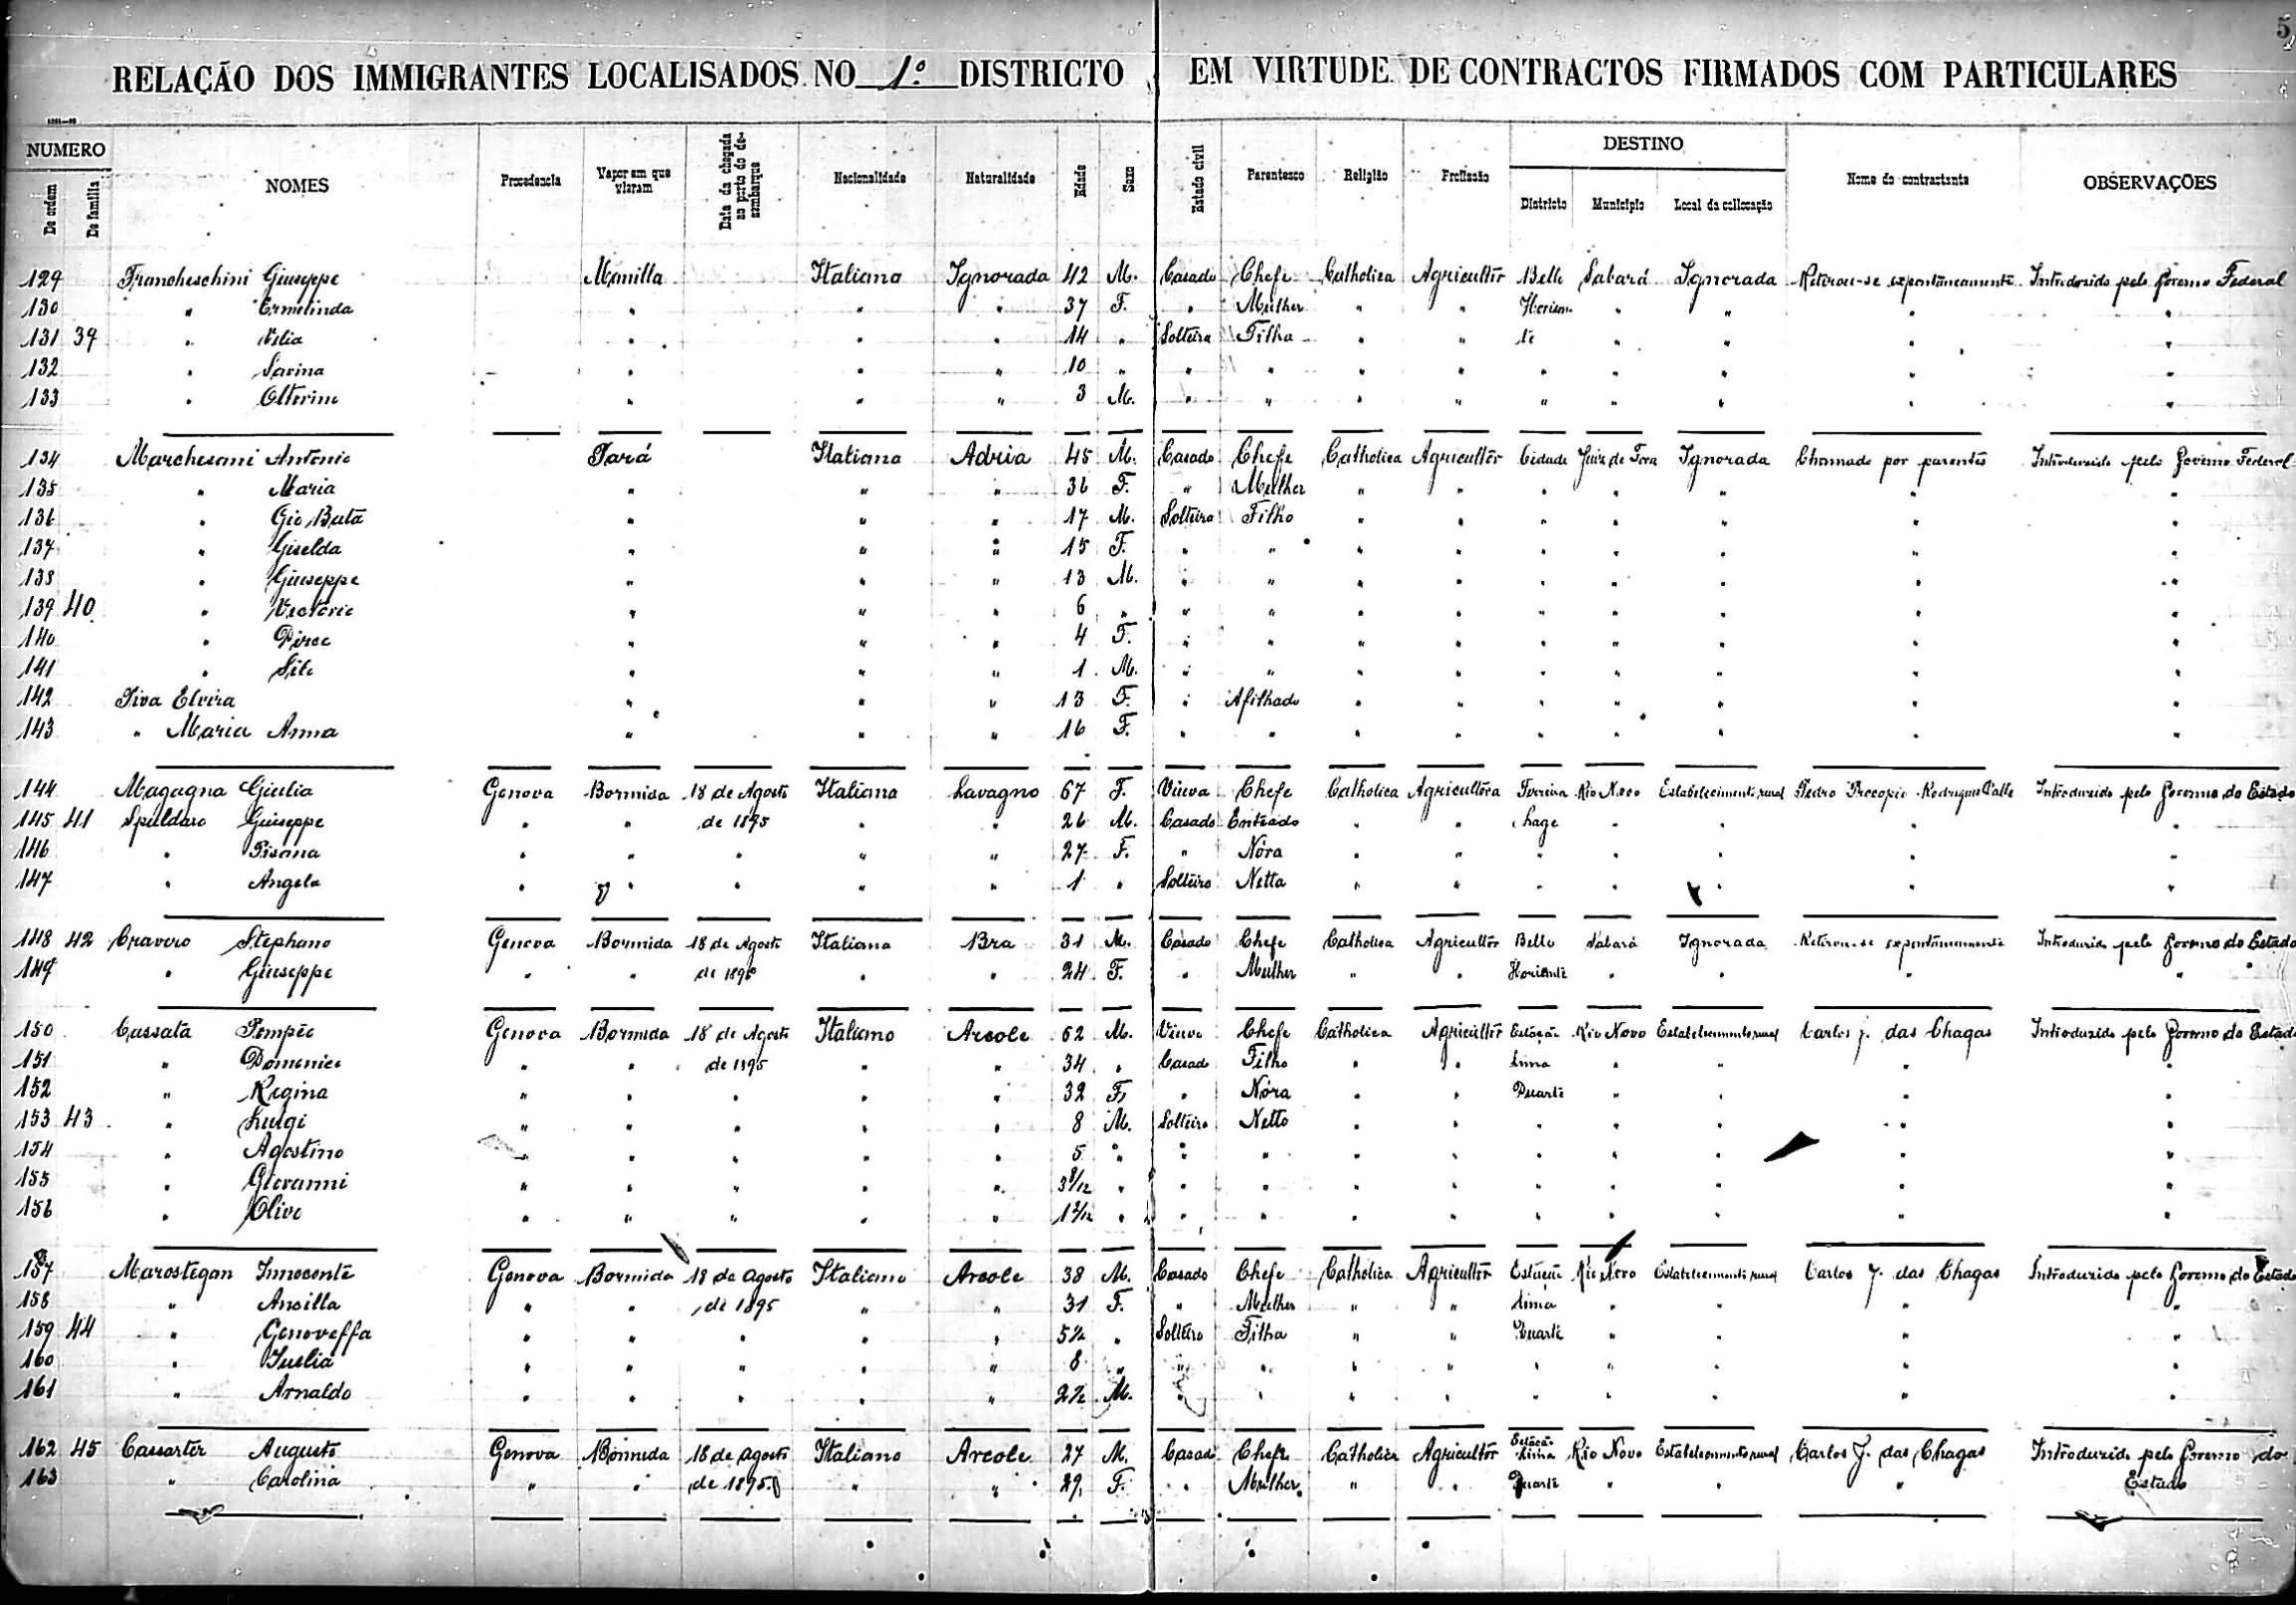 5
RELAÇÃO DOS IMMIGRANTES LOCALISADOS NO 1º DISTRICTO EM VIRTUDE DE CONTRACTOS FIRMADOS COM PARTICULARES
NUMERO
De ordem
De familia
NOMES
Procedencia
Vapor em que vieram
Data da chegada ao porto do desembarque
Nacionalidade
Naturalidade
Edade
Sexo
Estado civil
Parentesco
Religião
Profissão
DESTINO
Districto
Municipio
Local da collocação
Nome do contractante
OBSERVAÇÕES
129 Francheschini Giuseppe Manilla Italiana Ignorada 42 M. Casado Chefe Catholica Agricultôr Bello Sabará Ignorada Retirou-se expontaneamente Introduzido pelo Governo Federal
130 " Ermelinda " " " 37 F. " Mulher " " Horison " " " "
131 39 " " " " 14 " Solteira Filha " " te " " " "
132 " " " " 10 " " " " " " " " " "
133 " " " " 3 M. " " " " " " " " "
134 Marchesani Antonio Pará Italiana Adria 45 M. Casado Chefe Catholica Agricultôr Cidade Juiz de Fora Ignorada Chamado por parentes Introduzido pelo Governo Federal
135 " Maria " " " 36 F. " Mulher " " " " " " "
136 " Gio Bata " " " 17 M. Solteiro Filho " " " " " " "
137 " Giselda " " " 15 F. " " " " " " " " "
138 " Giuseppe " " " 13 M. " " " " " " " " "
139 40 " " " " 6 " " " " " " " " " "
140 " Dirce " " " 4 F. " " " " " " " " "
141 " " " " 1 M. " " " " " " " " "
142 Piva Elvira " " " 13 F. " Afilhado " " " " " " "
143 " Maria Anna " " " 16 F. " " " " " " " " "
144 Magagna Giulia Genova Bormida 18 de Agosto Italiana Lavagno 67 F. Viuva Chefe Catholica Agricultôra Ferreira Rio Novo Estabelecimento rural Pedro Procopio Rodrigues Valle Introduzido pelo Governo do Estado
145 41 Spuldaro Giuseppe " " de 1895 " " 26 M. Casado Enteado " " Lage " " " "
146 " Pisana " " " " " 27 F. " Nóra " " " " " " "
147 " Angela " " " " " 1 " Solteiro Netta " " " " " " "
148 42 Cravero Stephano Genova Bormida 18 de Agosto Italiana Bra 31 M. Casado Chefe Catholica Agricultôr Bello Sabará Ignorada Retirou-se expontaneamente Introduzido pelo Governo do Estado
149 " Giuseppe " " de 1895 " " 24 F. " Mulher " " Horizonte " " " "
150 Cassata Pompêo Genova Bormida 18 de Agosto Italiano Arcole 62 M. Viuvo Chefe Catholica Agricultôr Estação Rio Novo Estabelecimento rural Carlos J. das Chagas Introduzido pelo Governo do Estado
151 " Domenico " " de 1895 " " 34 " Casado Filho " " Lima " " " "
152 " Regina " " " " " 32 F. " Nóra " " Duarte " " " "
153 43 " Luigi " " " " " 8 M. Solteiro Netto " " " " " " "
154 " Agostino " " " " " 5 " " " " " " " " " "
155 " Giovanni " " " " " " " " " " " " " " "
156 " Olivo " " " " " " " " " " " " " " "
157 Marostegan Innocente Genova Bormida 18 de Agosto Italiano Arcole 38 M. Casado Chefe Catholica Agricultôr Estação Rio Novo Estabelecimento rural Carlos J. das Chagas Introduzido pelo Governo do Estado
158 " Ancilla " " de 1895 " " 31 F. " Mulher " " Lima " " " "
159 44 " Genoveffa " " " " " 5½ " Solteiro Filha " " Duarte " " " "
160 " Iuelia " " " " " 8 " " " " " " " " " "
161 " Arnaldo " " " " " 2½ M. " " " " " " " " "
162 45 Cassarter Augusto Genova Bormida 18 de Agosto Italiano Arcole 27 M. Casado Chefe Catholica Agricultôr Estação Lima Rio Novo Estabelecimento rural Carlos J. das Chagas Introduzido pelo Governo do
163 " Carolina " " de 1895 " " 29 F. " Mulher " " Duarte " " " Estado